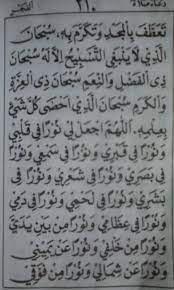 تَعَطَّفَ بِالْمَجْدِ وَتَكَرَّمَ بِهِ، سُبْحَانَ
الَّذِي لَا يَنْبَغِي التَّسْبِيحُ إِلَّا لَهُ سُبْحَانَ
ذِي الْفَضْلِ وَالنِّعَمِ سُبْحَانَ ذِي الْعِزَّةِ
وَالْكَرَمِ سُبْحَانَ الَّذِي أَحْصَى كُلَّ شَيْءٍ
بِعِلْمِهِ. اَللّٰهُمَّ اجْعَلْ لِي نُورًا فِي قَلْبِي
وَنُورًا فِي قَبْرِي وَنُورًا فِي سَمْعِي وَنُورًا
فِي بَصَرِي وَنُورًا فِي شَعْرِي وَنُورًا فِي
بَشَرِي وَنُورًا فِي لَحْمِي وَنُورًا فِي دَمِي
وَنُورًا فِي عِظَامِي وَنُورًا مِنْ بَيْنِ يَدَيَّ
وَنُورًا مِنْ خَلْفِي وَنُورًا عَنْ يَمِينِي
وَنُورًا عَنْ شِمَالِي وَنُورًا مِنْ فَوْقِي